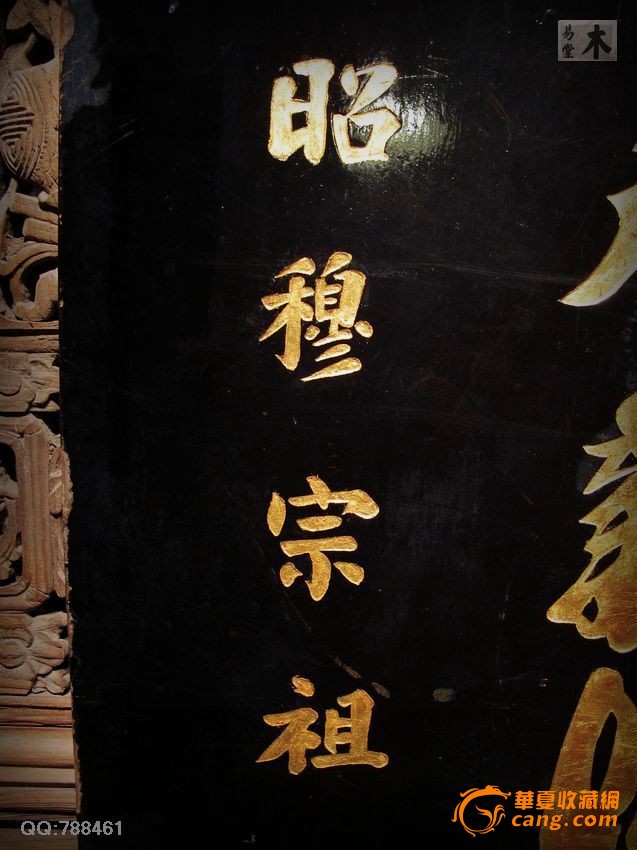 昭穆宗祖
木
易堂
QQ:788461
華夏收藏網
cang.com